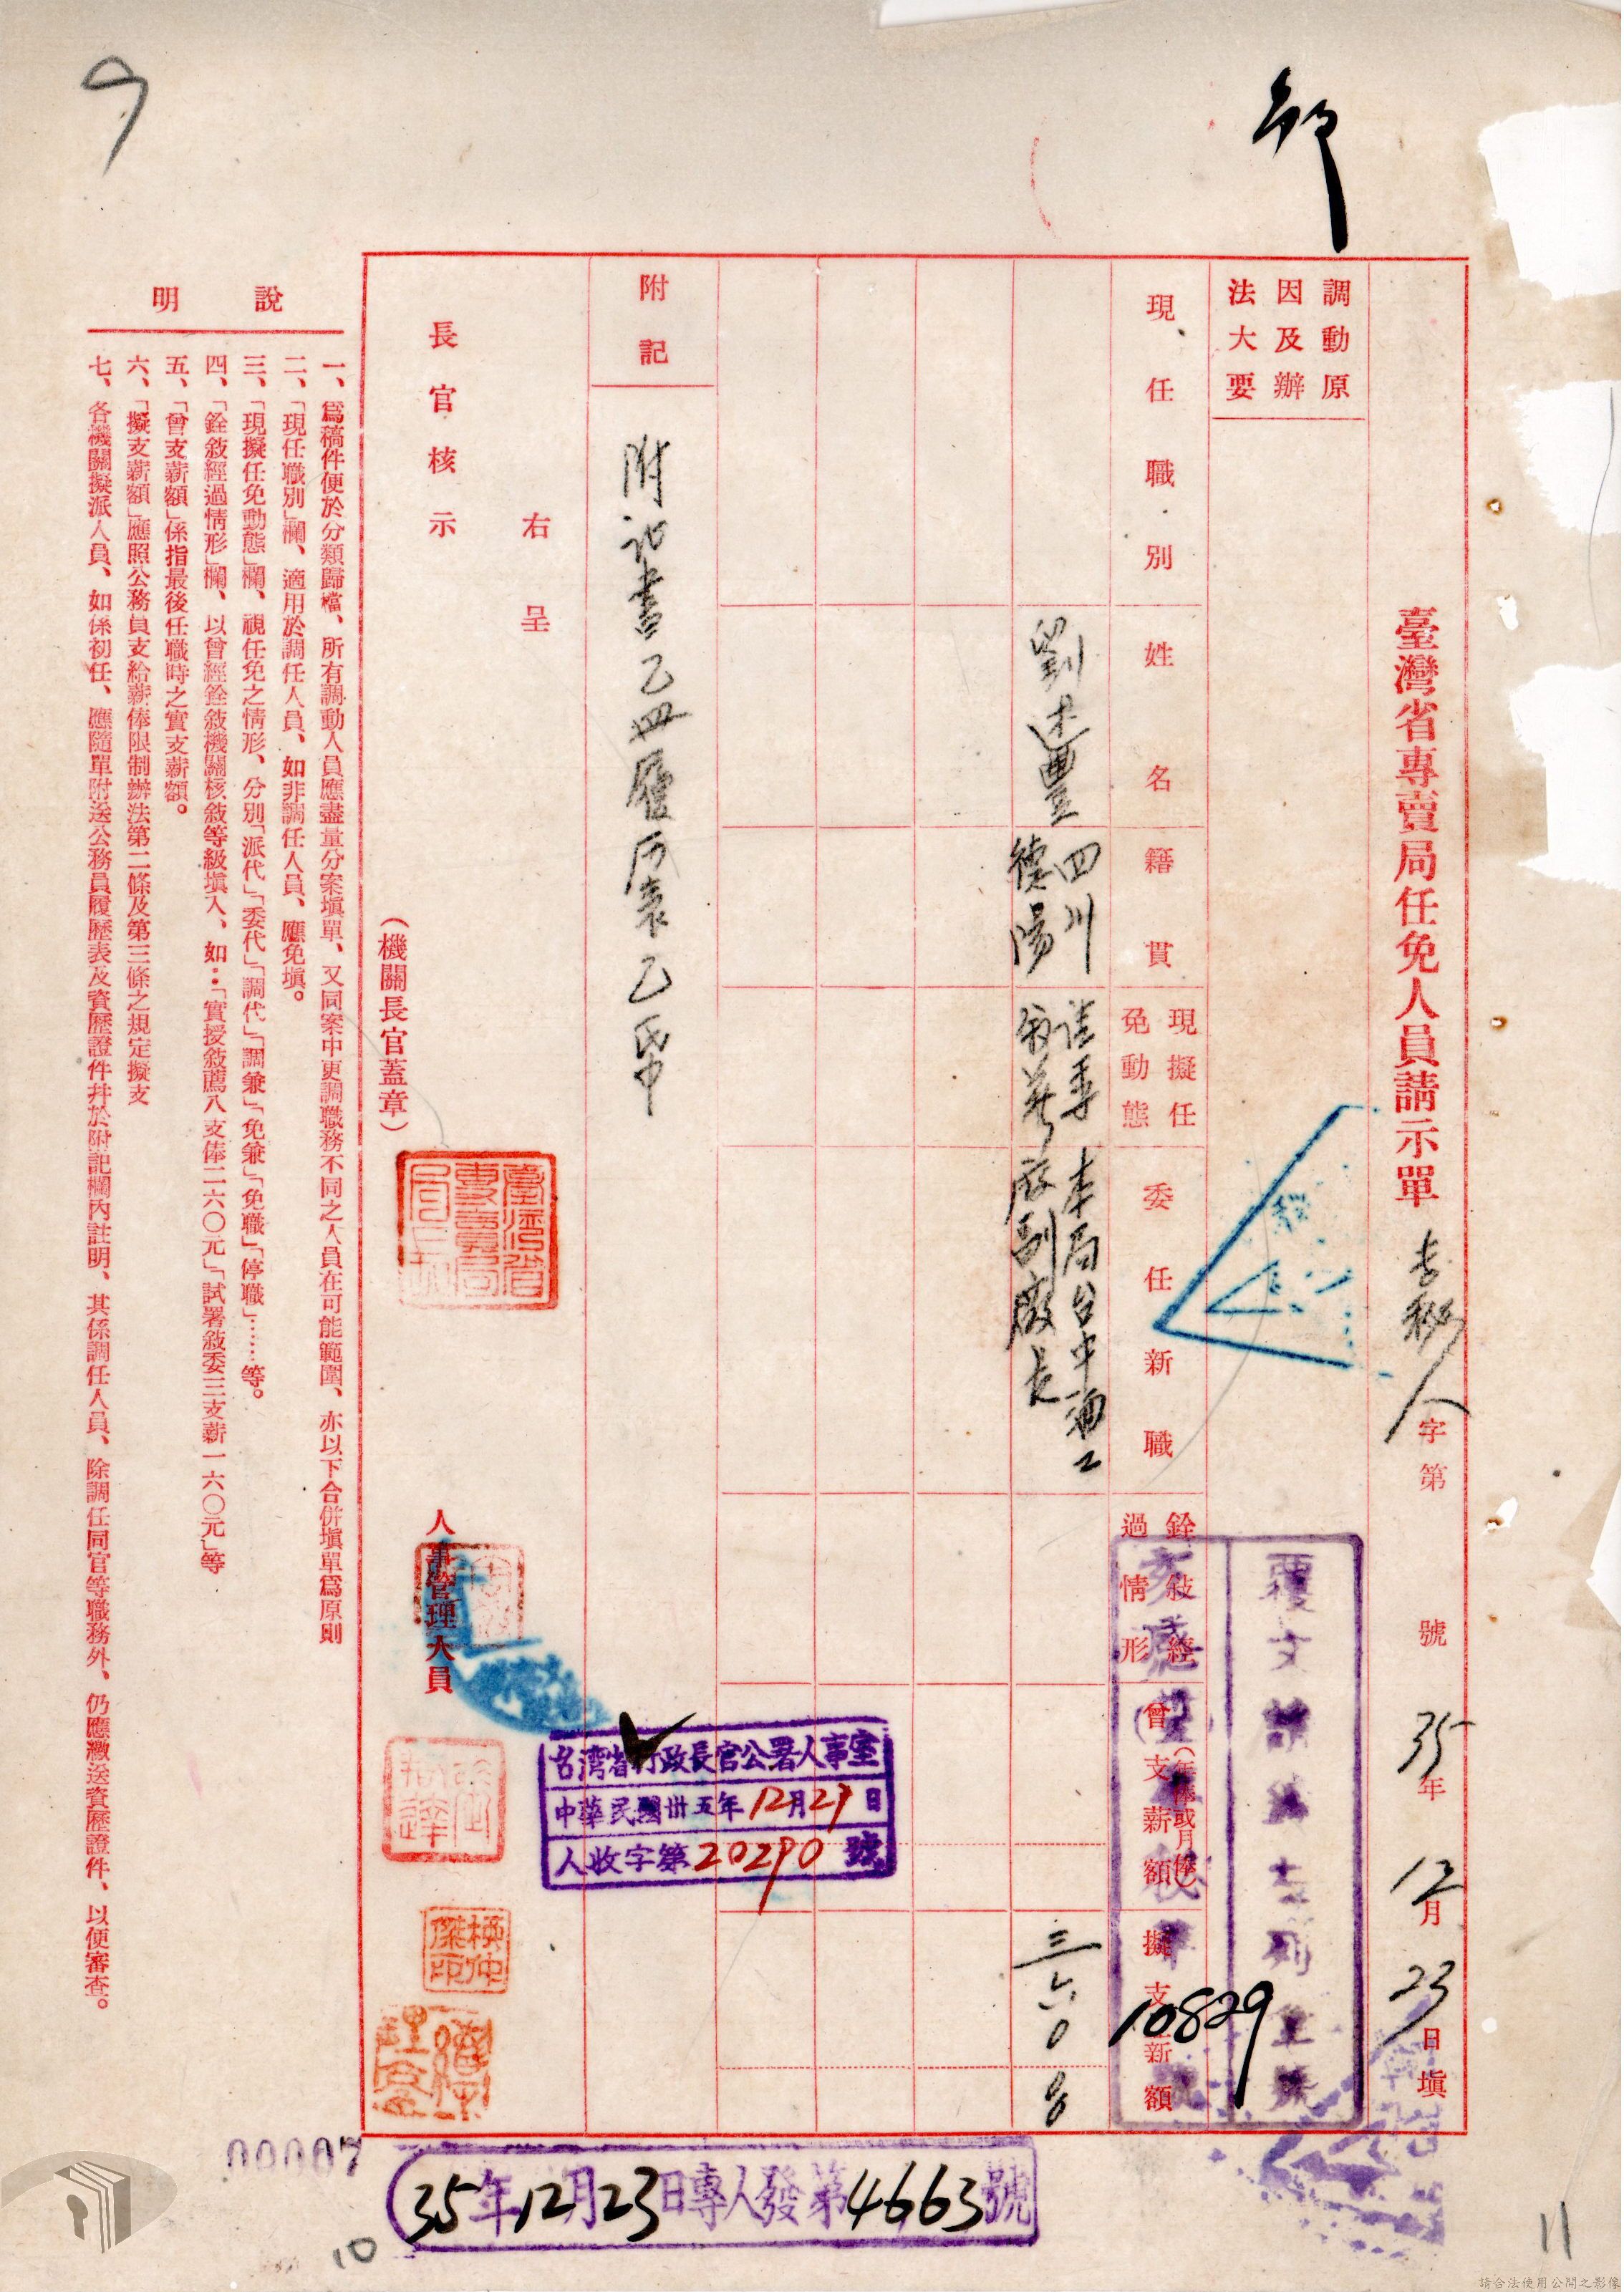 臺灣省專賣局任免人員請示單
專秘人字第 號 35年12月23日填
調動原
因及辦
法大要
現任職別
姓名
籍貫
現擬任
免動態
委任新職
銓敍經
過情形
曾支薪額
(年俸或月俸)
擬支新額
覆文請註明
10829
劉述豐
四川
德陽
本局台中酒工
廠副廠長
三六0
附記
附
書乙冊履历表乙
右呈
長官核示
(機關長官蓋章)
人事管理人員
台湾省行政長官公署人事室
中華民國卅五年12月27日
人收字第20290號
說明
一、爲稿件便於分類歸檔、所有調動人員應盡量分案塡單、又同案中更調職務不同之人員在可能範圍、亦以下合併塡單爲原則
二、「現任職別」欄、適用於調任人員、如非調任人員、應免塡。
三、「現擬任免動態」欄、視任免之情形、分別「派代」「委代」「調代」「調兼」「免兼」「免職」「停職」……等。
四、「銓敍經過情形」欄、以曾經銓敍機關核敍等級塡入、如：「實授敍薦八支俸二六〇元」「試署敍委三支薪一六〇元」等
五、「曾支薪額」係指最後任職時之實支薪額。
六、「擬支薪額」應照公務員支給薪俸限制辦法第二條及第三條之規定擬支
七、各機關擬派人員、如係初任、應隨單附送公務員履歷表及資歷證件幷於附記欄內註明、其係調任人員、除調任同官等職務外、仍應繳送資歷證件、以便審查。
35年12月23日專人發第4663號
00007
10
11
請合法使用公開之影像